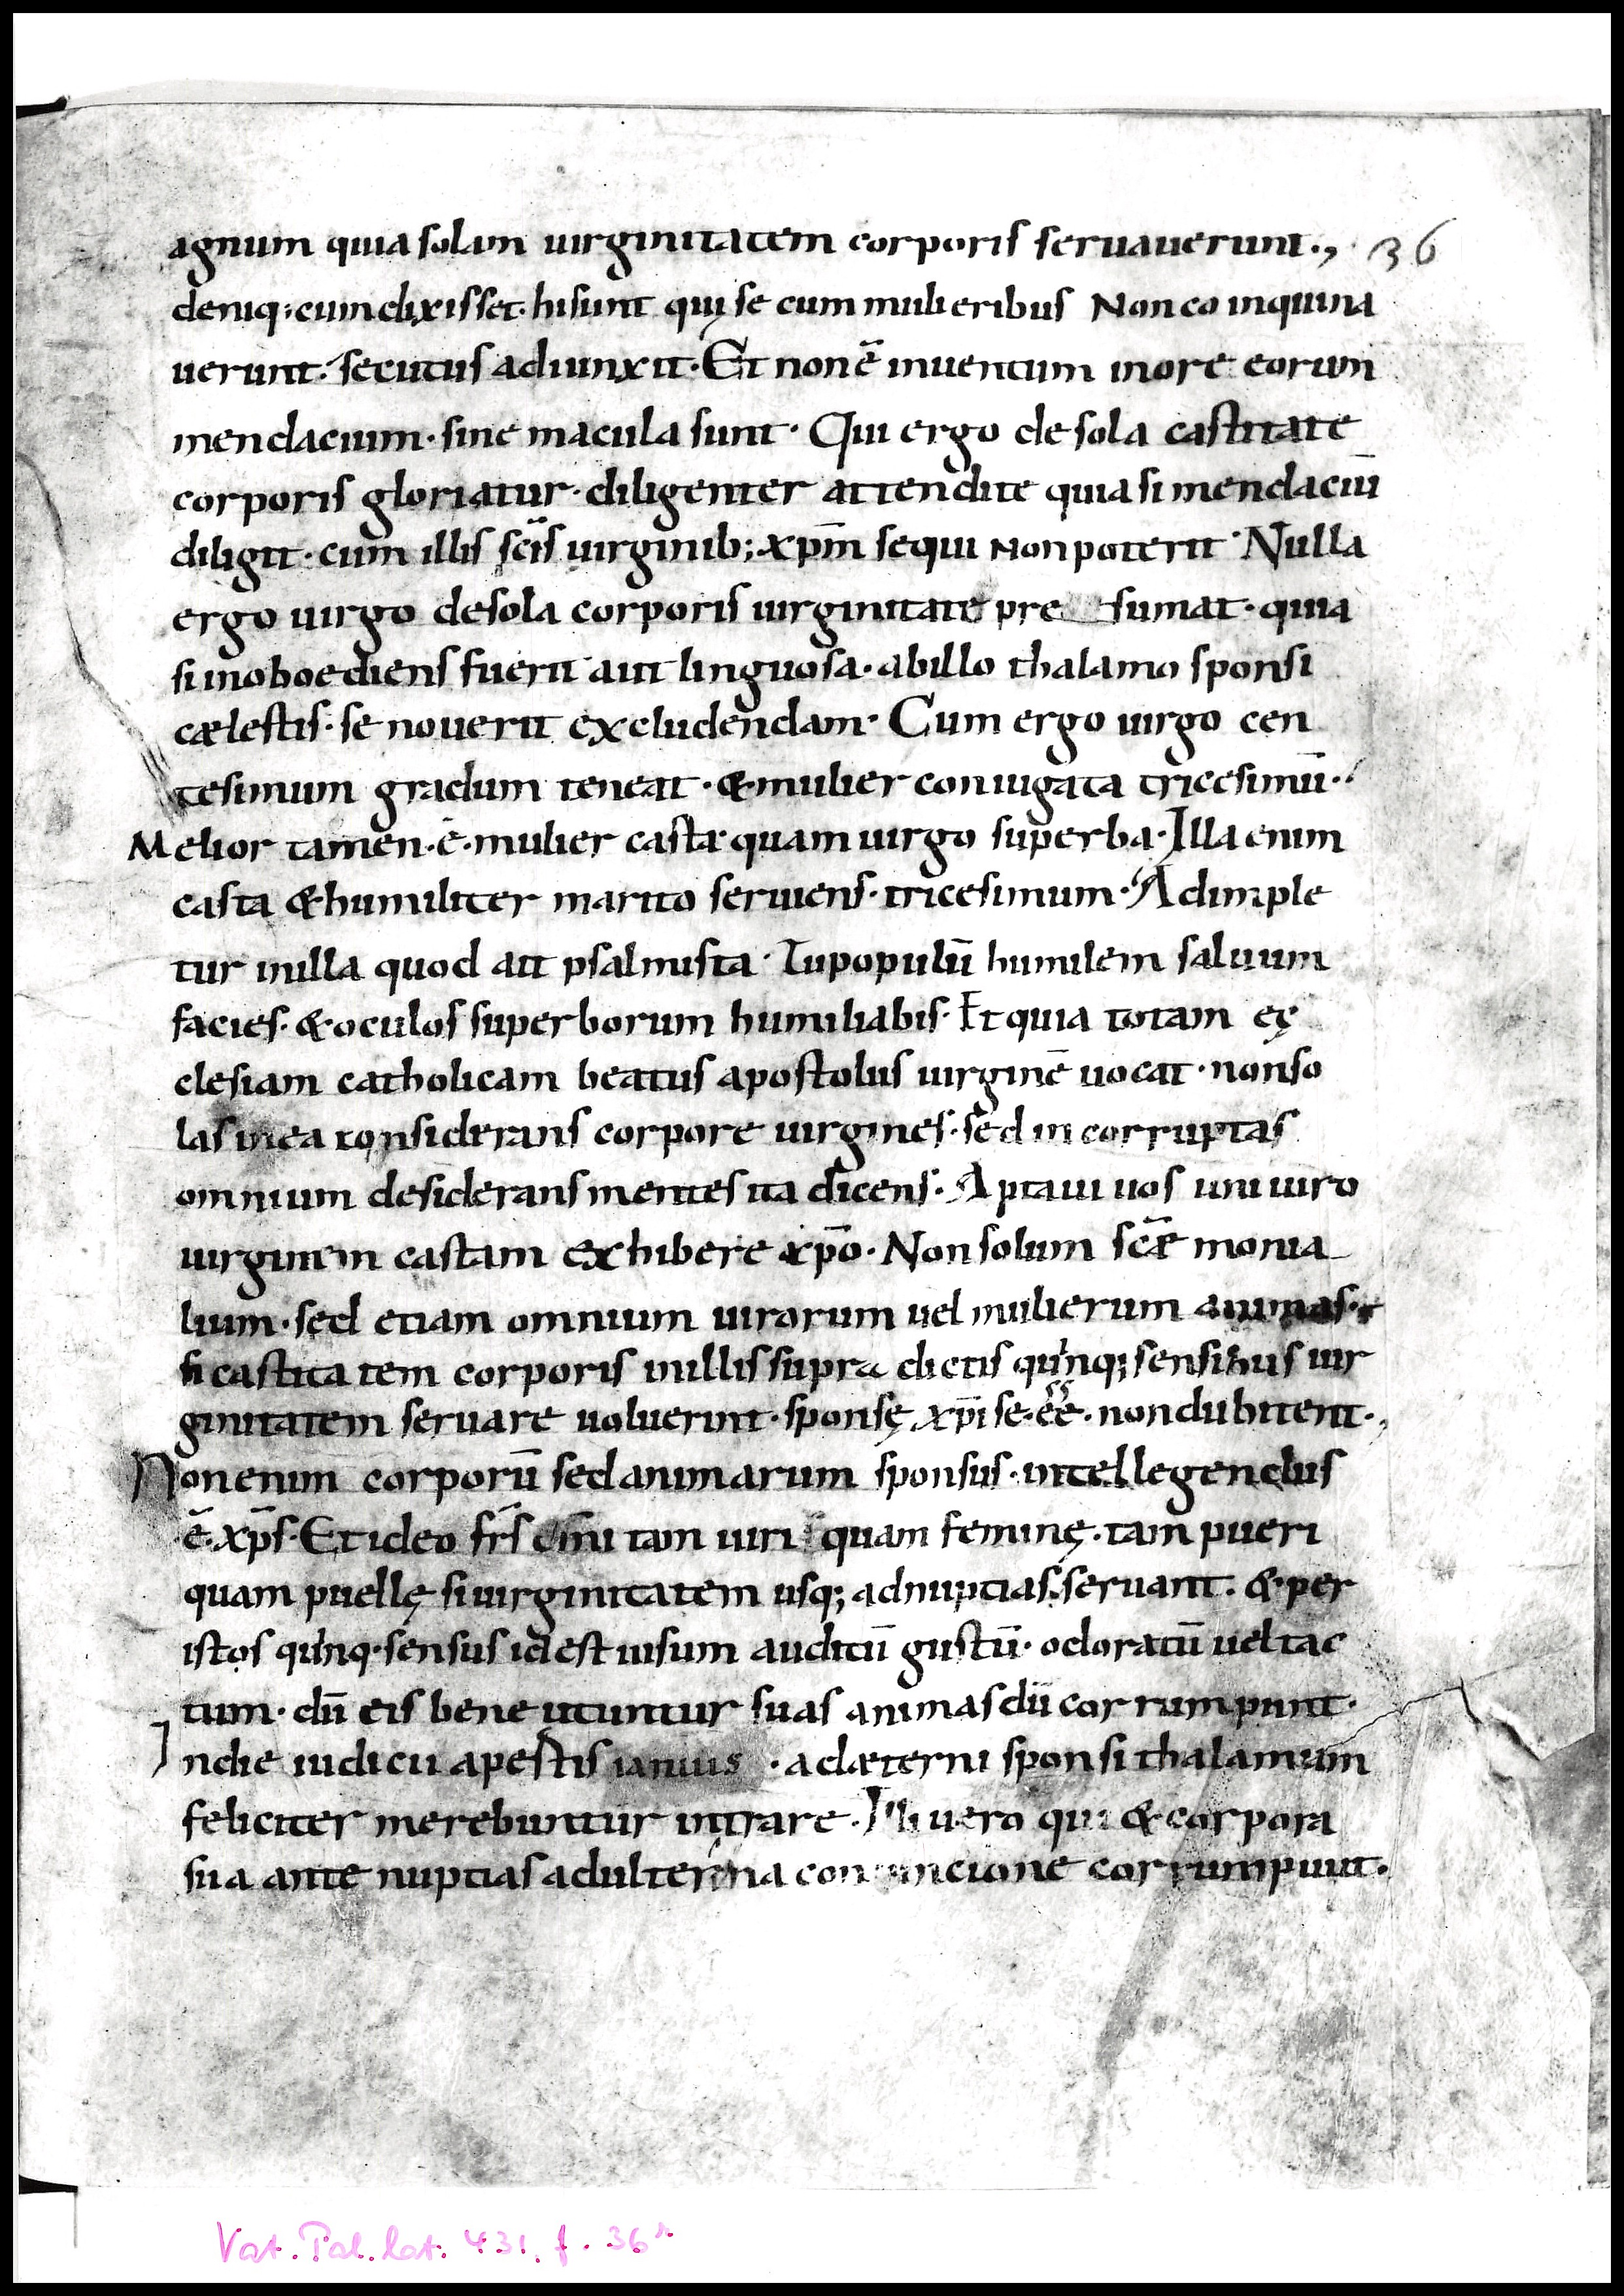 agnum quia solam uirginitatem corporis seruauerunt., 36
deniq; cum dixisset· hi sunt quị se cum mulieribus Non co inquina
uerunt· secutus adiunxit· Et non ē inuentum in ore eorum
mendacium· sine macula sunt· Qui ergo de sola castitate
corporis gloriatur· diligenter attendite quia si mendaciū
diligit· cum illis scīs uirginib; xpm̄ sequi Non poterit· Nulla
ergo uirgo de sola corporis uirginitate pre sumat· quia
si inoboediens fuerit aut linguosa· ab illo thalamo sponsi
cælestis· se nouerit excludendam· Cum ergo uirgo cen
tesimum gradum teneat· & mulier coniugata tricesimū·
Melior tamen·ē·mulier casta quam uirgo superba· Illa enim
casta & humiliter marito seruiens· tricesimum· Adimple
tur in illa quod ait psalmista· Tu populū humilem saluum
facies· & oculos superborum humiliabis· Et quia totam ęc
clesiam catholicam beatus apostolus uirginē uocat· non so
las in ea considerans corpore uirgines· sed in corruptas
omnium desiderans mentes ita dicens· Aptaui uos uni uiro
uirginem castam exhibere xpō· Non solum scǣ monia
lium· sed etiam omnium uirorum uel mulierum animas·
si castita tem corporis in illis supra dictis quinq; sensibus uir
ginitatem seruare uoluerint· sponsę xpī se·ēē·non dubitent·,
Non enim corporū sed animarum sponsus· intellegendus
ē·xps̄· Et ideo frs̄ om̄i tam uiri quam feminę· tam pueri
quam puellę si uirginitatem usq; ad nuptias seruant· & per
istos quinq· sensus id est uisum auditū gustū· odoratū uel tac
tum· dū eis bene utuntur suas animas dū corrumpunt·
In die iudicii apestis ianuis · ad æterni sponsi thalamum
feliciter merebuntur intrare· Illi uero qui & corpora
sua ante nuptias adulterina con cione corrumpunt·
Vat. Pal. lat. 431, f. 36r